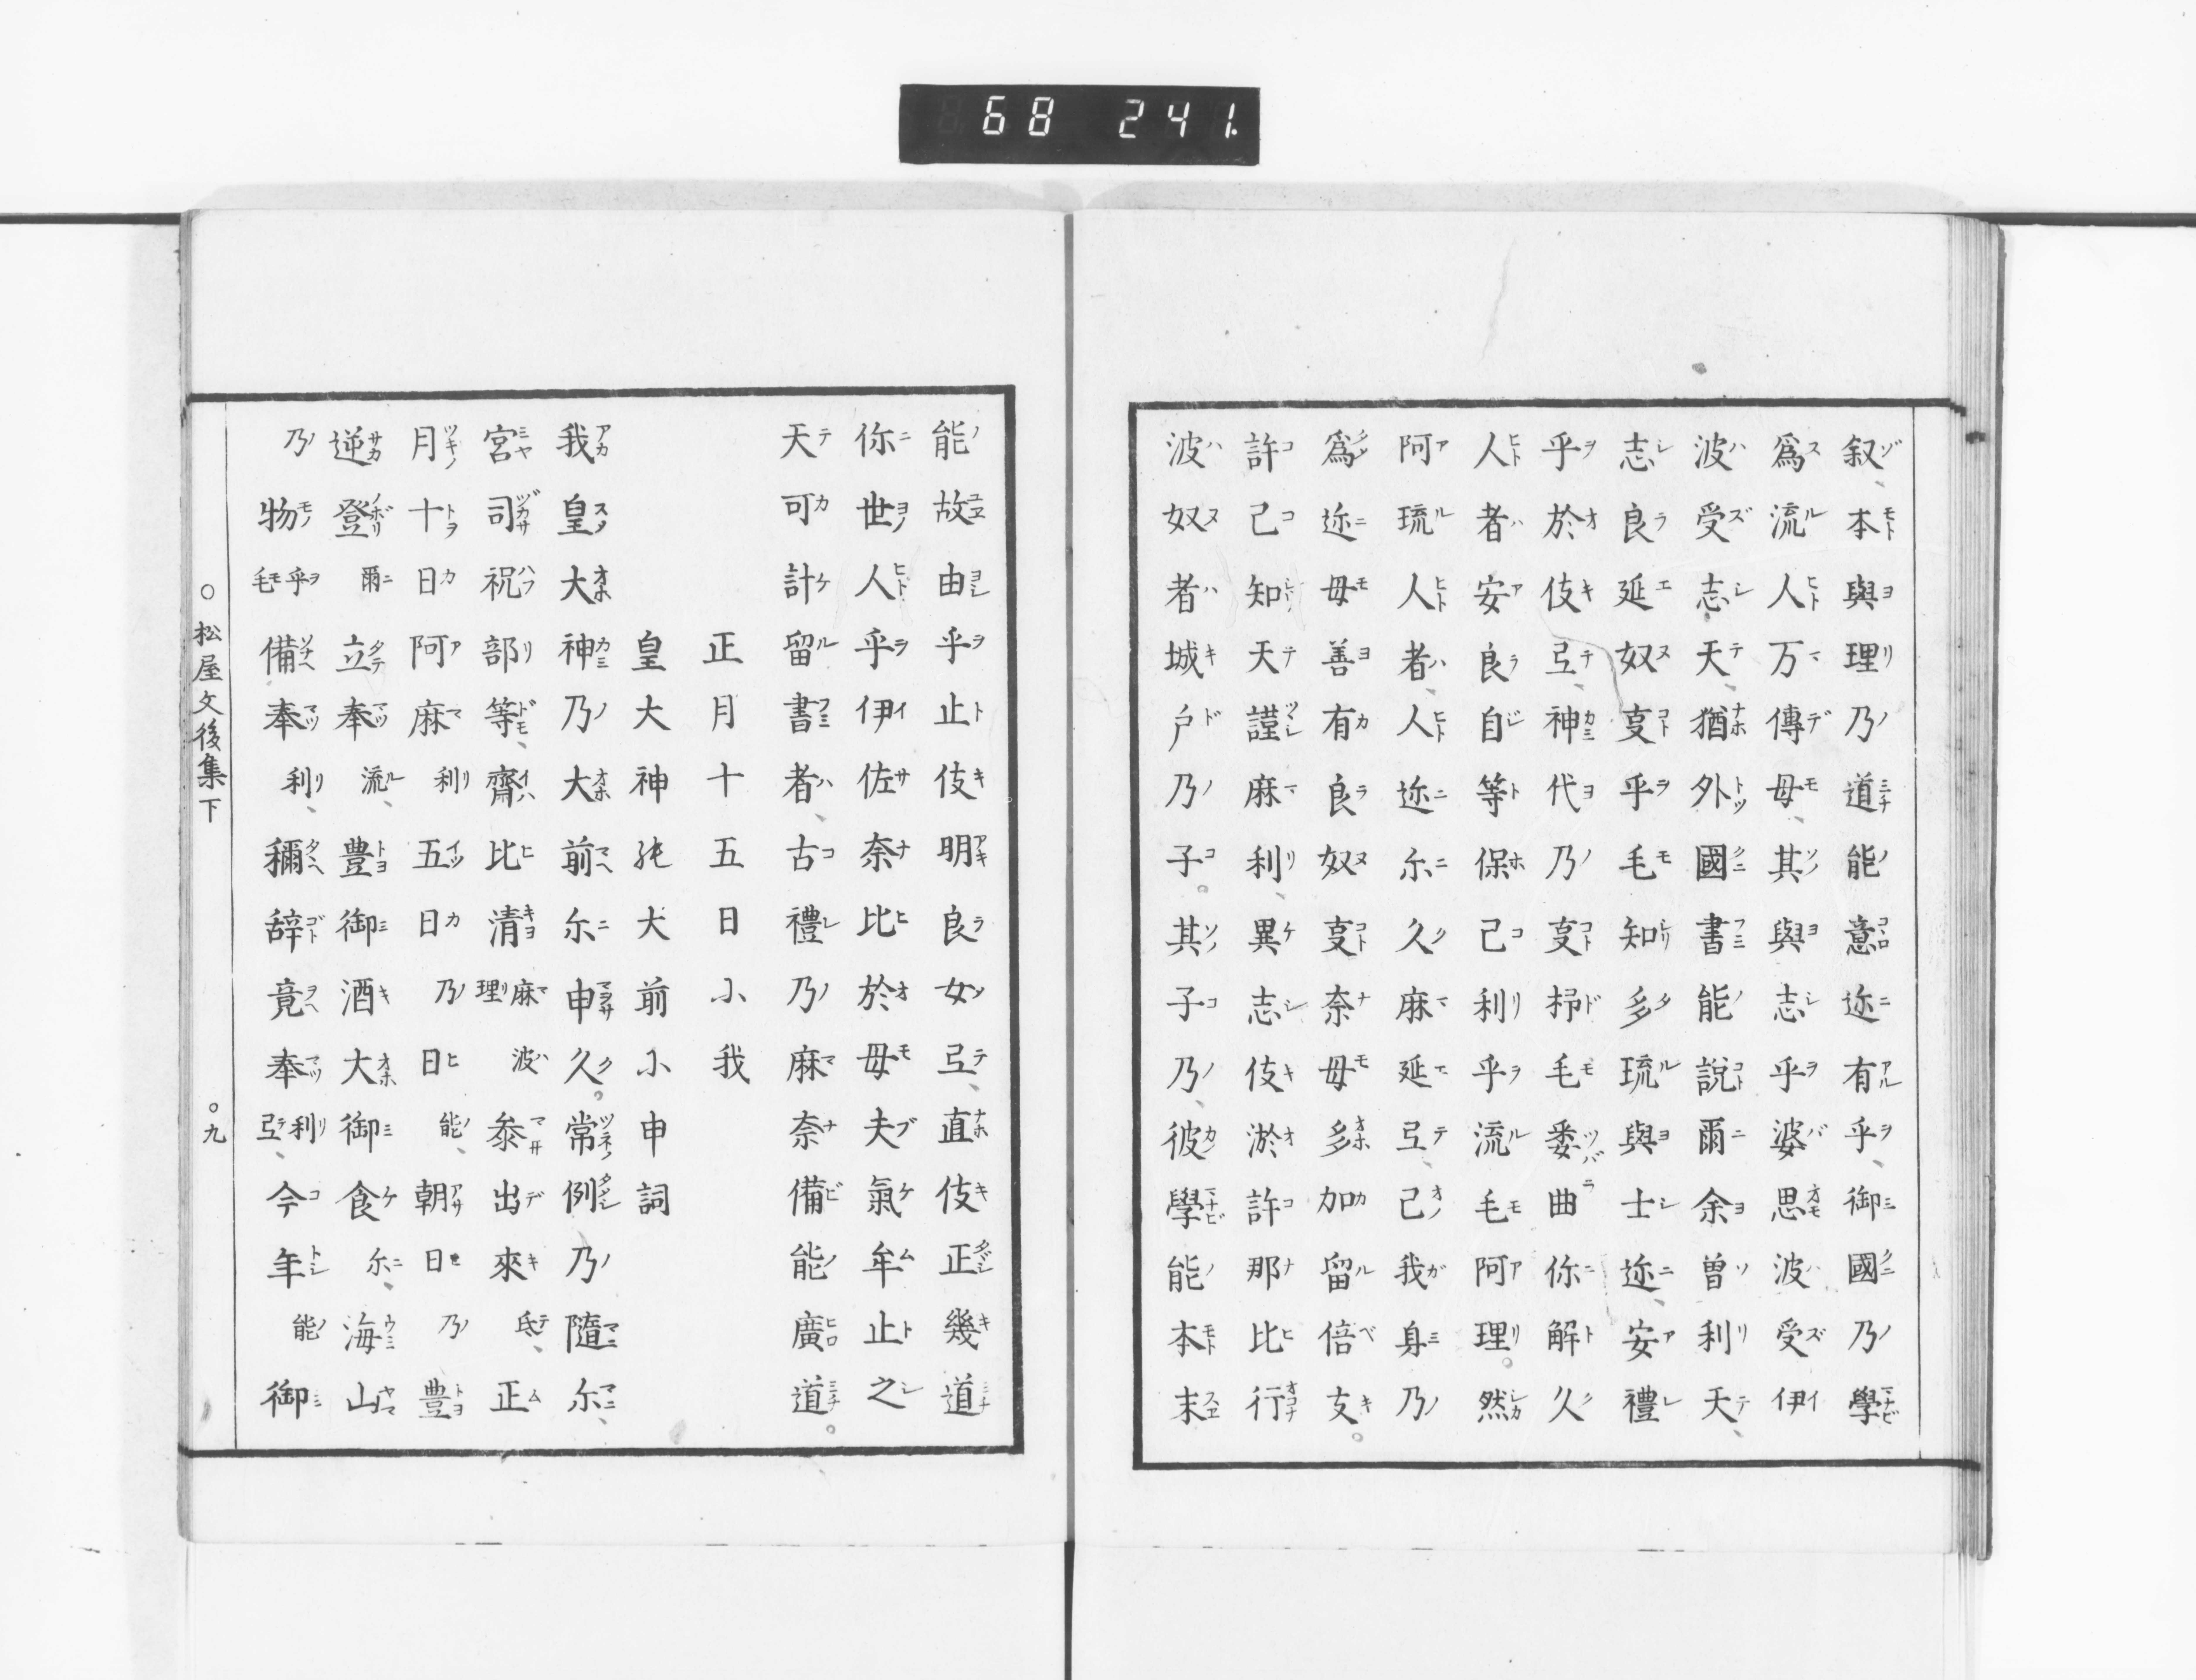 68 241.
叙、本與理乃道能意迩有乎、御國乃學
爲流人万傳母、其與志乎婆思波受伊
波受志天、猶外國書能説爾余曽利天、
志良延奴㕝乎毛知多琉與士迩、安禮
乎於伎弖、神代乃㕝杼毛委曲你解久
人者安良自等保己利乎流毛阿理。然
阿琉人者、人迩尓久麻延弖、己我身乃
爲迩母善有良奴㕝奈母多加留倍支。
許己知天謹麻利、異志伎淤許那比行
波奴者城戸乃子。其子乃、彼學能本末
能故由乎止伎明良女弖、直伎正幾道
你世人乎伊佐奈比於母夫氣牟止之
天可計留書者、古禮乃麻奈備能廣道。
正月十五日小我
皇大神能大前小申詞
我皇大神乃大前尓申久。常例乃隨尓、
宮司祝部等、齋比清麻理波參出來氐、正
月十日阿麻利五日乃日能、朝日乃豊
逆登爾立奉流、豊御酒大御食尓、海山
乃物乎毛備奉利、稱辞竟奉利弖、今年能御
○松屋文後集下 ○九